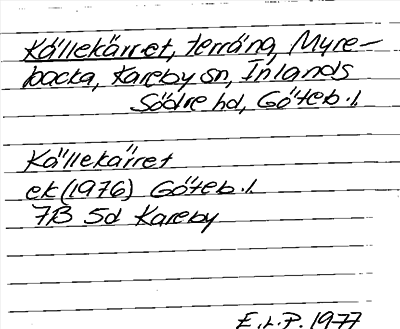 Källekärret, terräng, Myre-
backa, Kareby sn, Inlands
Södre hd, Göteb. l.
Källekärret
ek (1976) Göteb. l.
7B 5d Kareby
E.L.P. 1977